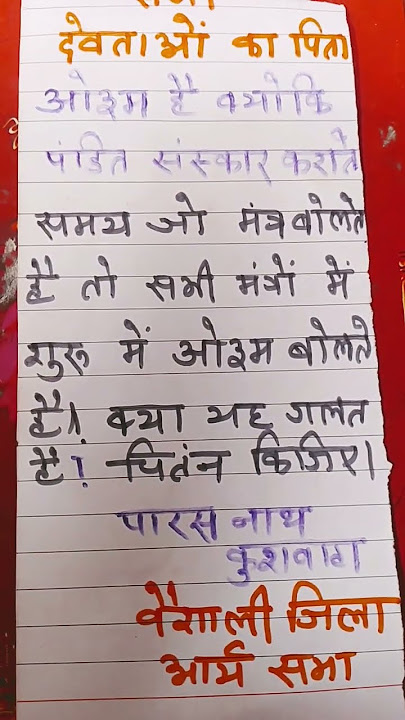 देवताओं का पिता
ओइम है क्योकि
पंडित संस्कार कराते
समय जो मंत्र बोलते
है तो सभी मंत्रों में
शुरू में ओइम बोलते
है। क्या यह गलत
है! चितंन किजिए।
पारस नाथ
कुशवाहा
वैशाली जिला
आर्य सभा